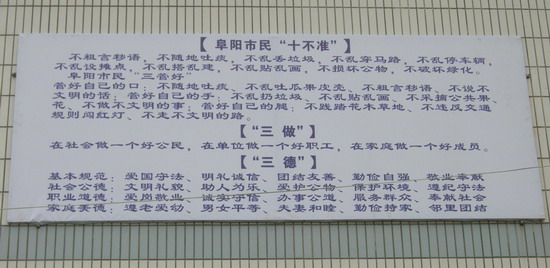 【阜阳市民“十不准”】
不粗言秽语、不随地吐痰、不乱丢垃圾、不乱穿马路、不乱停车辆、
不乱设摊点、不乱搭乱建、不乱贴乱画、不损坏公物、不破坏绿化。
阜阳市民“三管好”
管好自己的口：不随地吐痰、不乱吐瓜果皮壳、不粗言秽语、不说不
文明的话；管好自己的手：不乱扔垃圾、不乱贴乱画、不采摘公共果
花、不做不文明的事；管好自己的腿：不践踏花木草地、不违反交通
规则闯红灯、不走不文明的路。
【“三 做”】
在社会做一个好公民，在单位做一个好职工，在家庭做一个好成员。
【“三 德”】
基本规范：爱国守法、明礼诚信、团结友善、勤俭自强、敬业奉献
社会公德：文明礼貌、助人为乐、爱护公物、保护环境、遵纪守法
职业道德：爱岗敬业、诚实守信、办事公道、服务群众、奉献社会
家庭美德：尊老爱幼、男女平等、夫妻和睦、勤俭持家、邻里团结